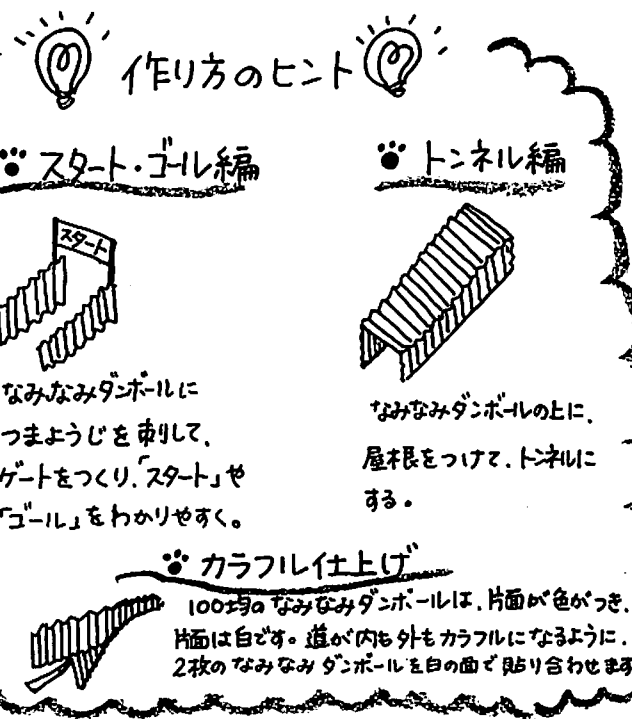 作り方のヒント
スタート・ゴール編
スタート
なみなみダンボールに
つまようじを刺して、
ゲートをつくり、「スタート」や
「ゴール」をわかりやすく。
トンネル編
なみなみダンボールの上に、
屋根をつけて、トンネルに
する。
カラフル仕上げ
100均のなみなみダンボールは、片面が色がつき、
片面は白です。道が内も外もカラフルになるように、
2枚のなみなみダンボールを白の面で貼り合わせます